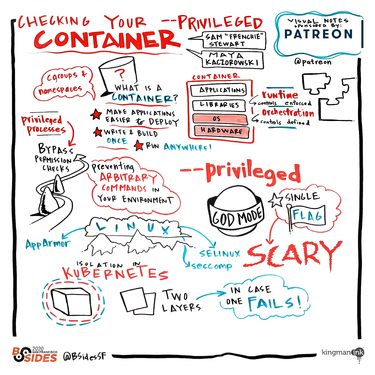 CHECKING YOUR --PRIVILEGED
CONTAINER
SAM "FRENCHIE"
STEWART
MAYA
KACZOROWSKI
VISUAL NOTES
SPONSORED BY:
PATREON
@patreon
cgroups &
namespaces
?
WHAT IS A
CONTAINER?
MAKE APPLICATIONS
EASIER & DEPLOY
WRITE & BUILD
ONCE
RUN ANYWHERE!
CONTAINER
APPLICATIONS
LIBRARIES
OS
HARDWARE
runtime
controls enforced
Orchestration
controls defined
Privileged
processes
BYPASS
PERMISSION
CHECKS
Preventing
ARBITRARY
COMMANDS IN
YOUR ENVIRONMENT
--privileged
GOD MODE
SINGLE
FLAG
SCARY
LINUX
AppArmor
SELINUX
seccomp
ISOLATION IN
KUBERNETES
TWO
LAYERS
IN CASE
ONE FAILS!
BSIDES
2020
@BSidesSF
kingmanink